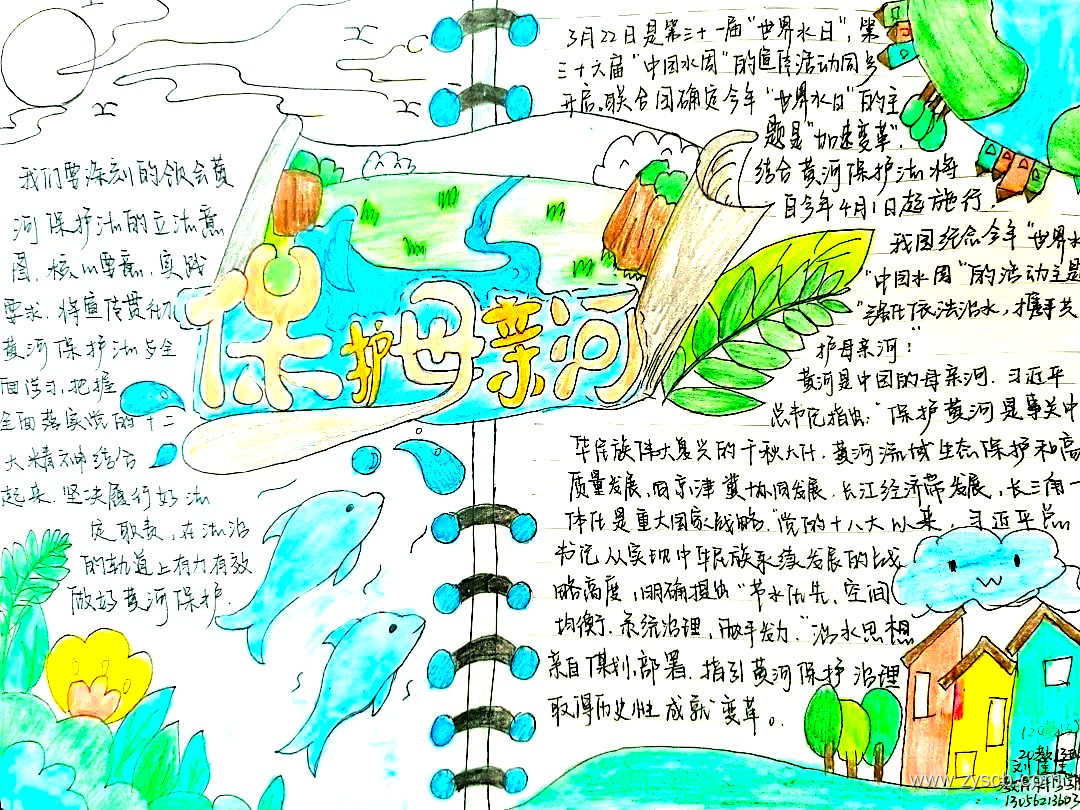 保护母亲河
我们要深刻的领会黄
河保护法的立法意
图、核心要意、实践
要求、将宣传贯彻
黄河保护法与全
面学习、把握
全面落实党的十二
大精神结合
起来、坚决履行好法
定职责、在法治
的轨道上有力有效
做好黄河保护.
3月22日是第三十一届"世界水日",第
三十六届"中国水周"的宣传活动同步
开启。联合国确定今年"世界水日"的主
题是"加速变革".
结合黄河保护法将
自今年4月1日起施行.
我国纪念今年"世界水
"中国水周"的活动主题
"强化依法治水,携手共
护母亲河!
黄河是中国的母亲河.习近平
总书记指出:"保护黄河是事关中
华民族伟大复兴的千秋大计.黄河流域生态保护和高
质量发展,同京津冀协同发展.长江经济带发展,长三角一
体化是重大国家战略."党的十八大以来,习近平总
书记从实现中华民族永续发展的战
略高度,明确提出"节水优先、空间
均衡、系统治理,两手发力."治水思想
亲自谋划、部署.指引黄河保护治理
取得历史性成就变革。
刘
13056213602
www.zyscb.com